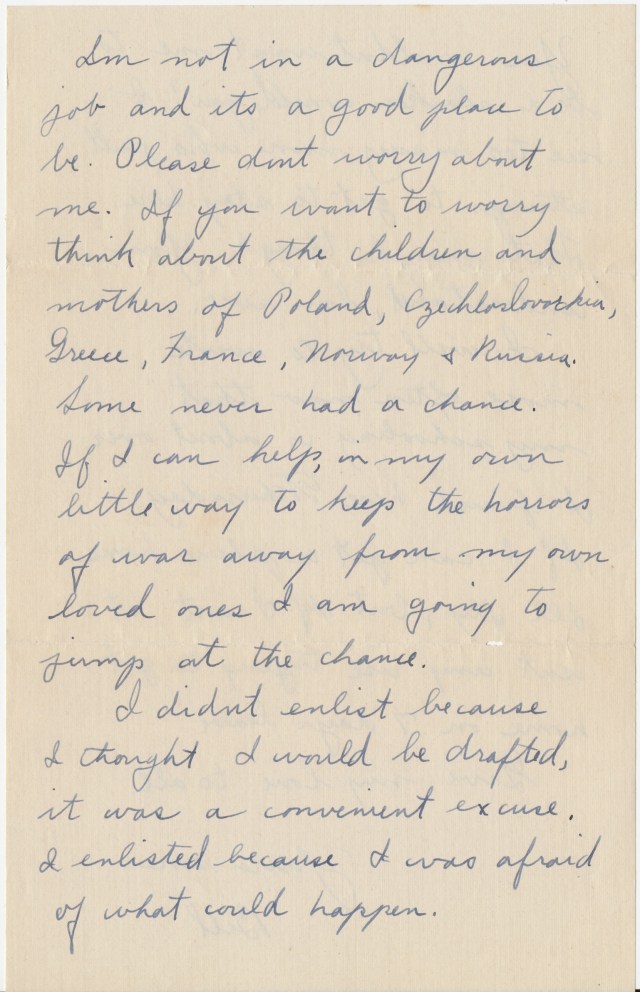 Im not in a dangerous
job and its a good place to
be. Please dont worry about
me. If you want to worry
think about the children and
mothers of Poland, Czechloslovorkia,
Greece, France, Norway & Russia.
Some never had a chance.
If I can help, in my own
little way to keep the horrors
of war away from my own
loved ones I am going to
jump at the chance.
I didnt enlist because
I thought I would be drafted,
it was a convenient excuse.
I enlisted because I was afraid
of what could happen.